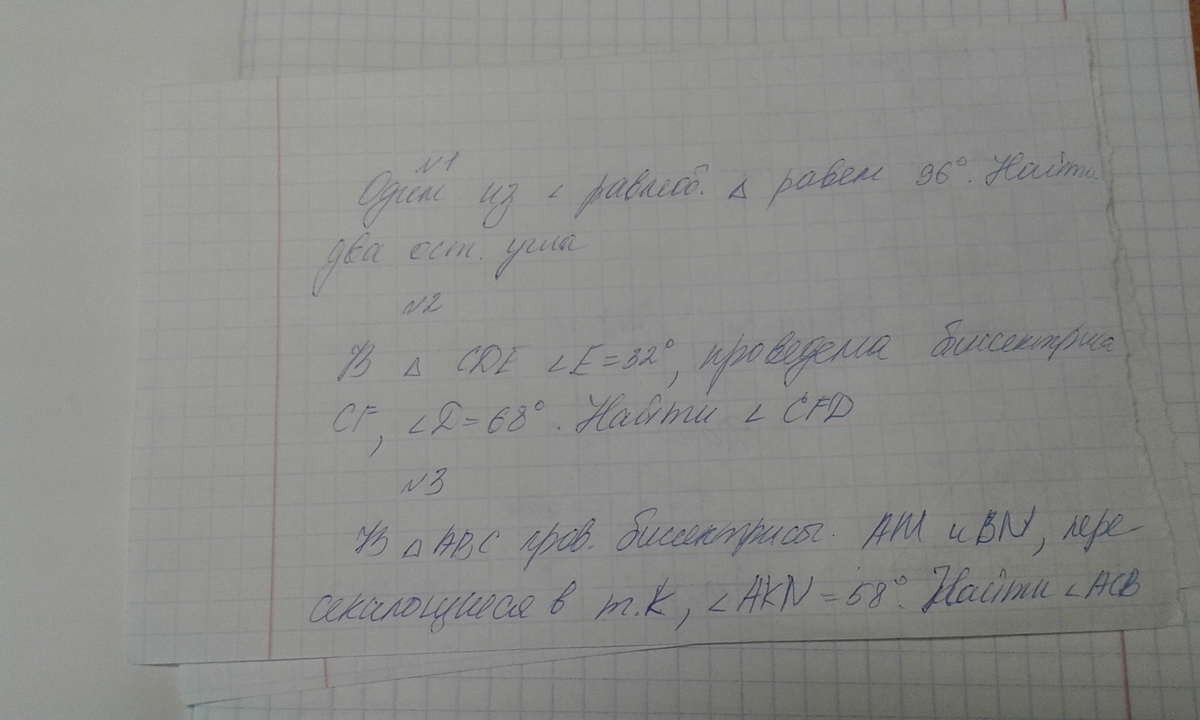 №1
Один из ∠ равноб. △ равен 96°. Найти
два ост. угла
№2
В △ CDE ∠E=32°, проведена биссектриса
CF, ∠D=68°. Найти ∠ CFD
№3
В △ABC пров. биссектрисы. AM и BN, пере-
секающиеся в т.К, ∠AKN=58°. Найти ∠ACB